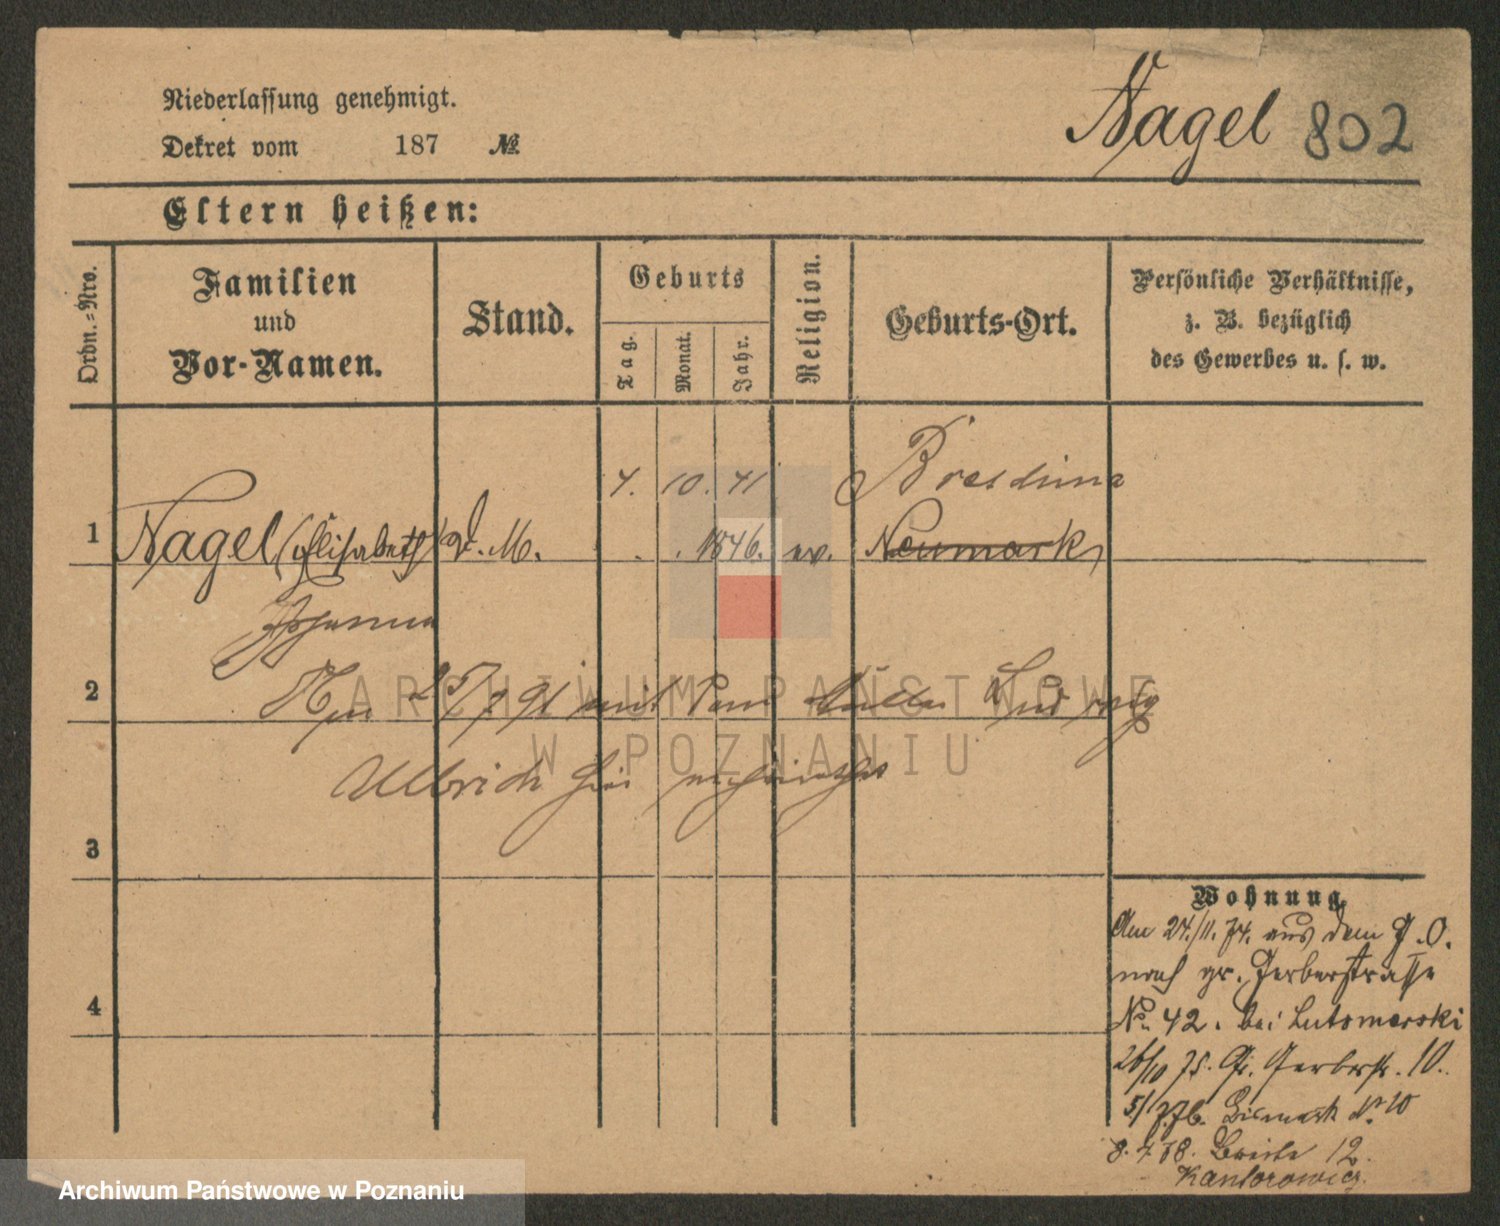 Niederlassung genehmigt.
Dekret vom 187 №
Nagel 802
Eltern heißen:
Ordn.-Nro.
Familien
und
Vor-Namen.
Stand.
Geburts
Tag.
Monat.
Jahr.
Religion.
Geburts-Ort.
Persönliche Verhältnisse,
z. B. bezüglich
des Gewerbes u. s. w.
4. 10. 41
1 Nagel (Elisabeth) d. M. 1846. ev. Neumark
Johanna
2
mit dem Ludwig
Ullrich hier
3
4
Wohnung.
Am 24./11. 74. aus dem J. O.
nach gr. Gerberstrasse
No. 42. bei Lutomerski
26/10 75. Gr. Gerberstr. 10.
5/7. 76. Bismark No 10
8. 7 78. Breite 12.
Kantorowicz.
ARCHIWUM PAŃSTWOWE
W POZNANIU
Archiwum Państwowe w Poznaniu